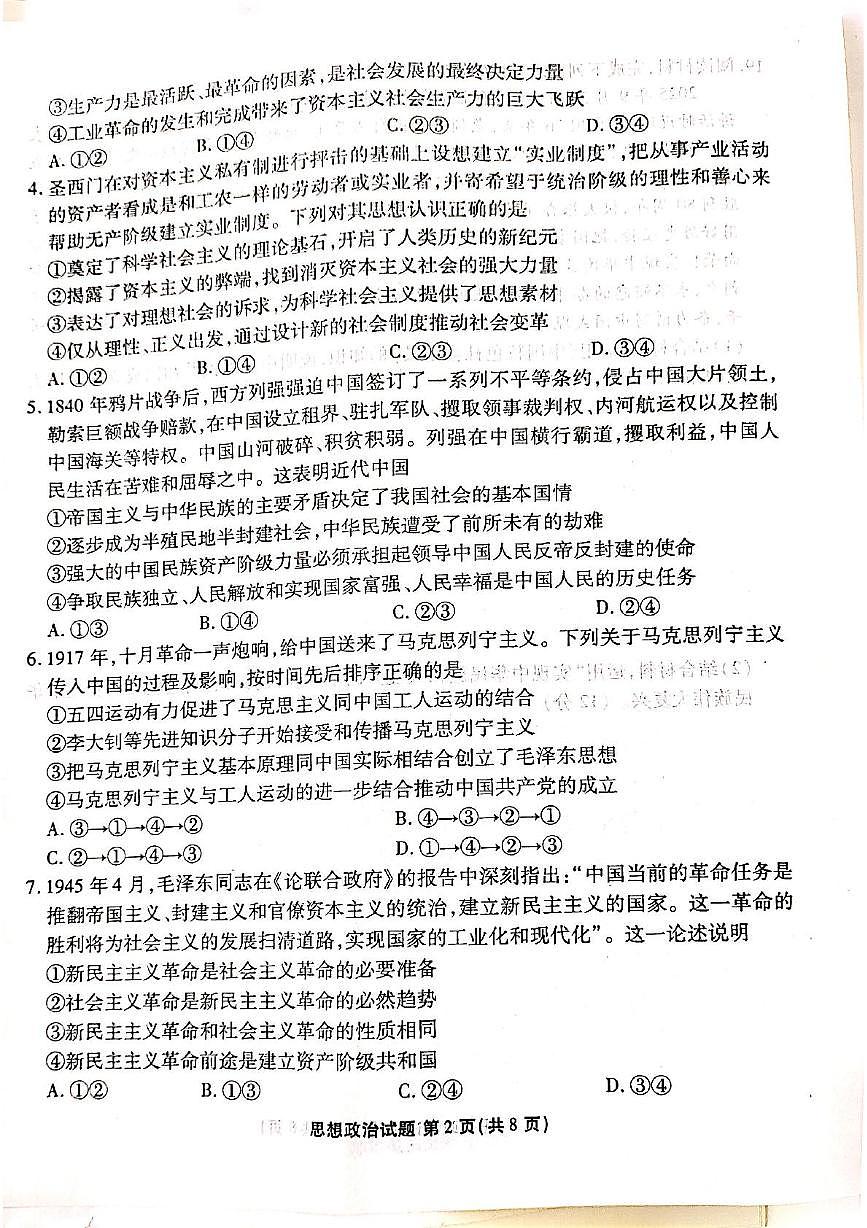 ③生产力是最活跃、最革命的因素,是社会发展的最终决定力量
④工业革命的发生和完成带来了资本主义社会生产力的巨大飞跃
A. ①② B. ①④ C. ②③ D. ③④
4. 圣西门在对资本主义私有制进行抨击的基础上设想建立“实业制度”,把从事产业活动
的资产者看成是和工农一样的劳动者或实业者,并寄希望于统治阶级的理性和善心来
帮助无产阶级建立实业制度。下列对其思想认识正确的是
①奠定了科学社会主义的理论基石,开启了人类历史的新纪元
②揭露了资本主义的弊端,找到消灭资本主义社会的强大力量
③表达了对理想社会的诉求,为科学社会主义提供了思想素材
④仅从理性、正义出发,通过设计新的社会制度推动社会变革
A. ①② B. ①④ C. ②③ D. ③④
5. 1840 年鸦片战争后,西方列强强迫中国签订了一系列不平等条约,侵占中国大片领土,
勒索巨额战争赔款,在中国设立租界、驻扎军队、攫取领事裁判权、内河航运权以及控制
中国海关等特权。中国山河破碎、积贫积弱。列强在中国横行霸道,攫取利益,中国人
民生活在苦难和屈辱之中。这表明近代中国
①帝国主义与中华民族的主要矛盾决定了我国社会的基本国情
②逐步成为半殖民地半封建社会,中华民族遭受了前所未有的劫难
③强大的中国民族资产阶级力量必须承担起领导中国人民反帝反封建的使命
④争取民族独立、人民解放和实现国家富强、人民幸福是中国人民的历史任务
A. ①③ B. ①④ C. ②③ D. ②④
6. 1917 年,十月革命一声炮响,给中国送来了马克思列宁主义。下列关于马克思列宁主义
传入中国的过程及影响,按时间先后排序正确的是
①五四运动有力促进了马克思主义同中国工人运动的结合
②李大钊等先进知识分子开始接受和传播马克思列宁主义
③把马克思列宁主义基本原理同中国实际相结合创立了毛泽东思想
④马克思列宁主义与工人运动的进一步结合推动中国共产党的成立
A. ③→①→④→② B. ④→③→②→①
C. ②→①→④→③ D. ①→④→②→③
7. 1945 年 4 月,毛泽东同志在《论联合政府》的报告中深刻指出:“中国当前的革命任务是
推翻帝国主义、封建主义和官僚资本主义的统治,建立新民主主义的国家。这一革命的
胜利将为社会主义的发展扫清道路,实现国家的工业化和现代化”。这一论述说明
①新民主主义革命是社会主义革命的必要准备
②社会主义革命是新民主主义革命的必然趋势
③新民主主义革命和社会主义革命的性质相同
④新民主主义革命前途是建立资产阶级共和国
A. ①② B. ①③ C. ②④ D. ③④
思想政治试题 第 2 页(共 8 页)